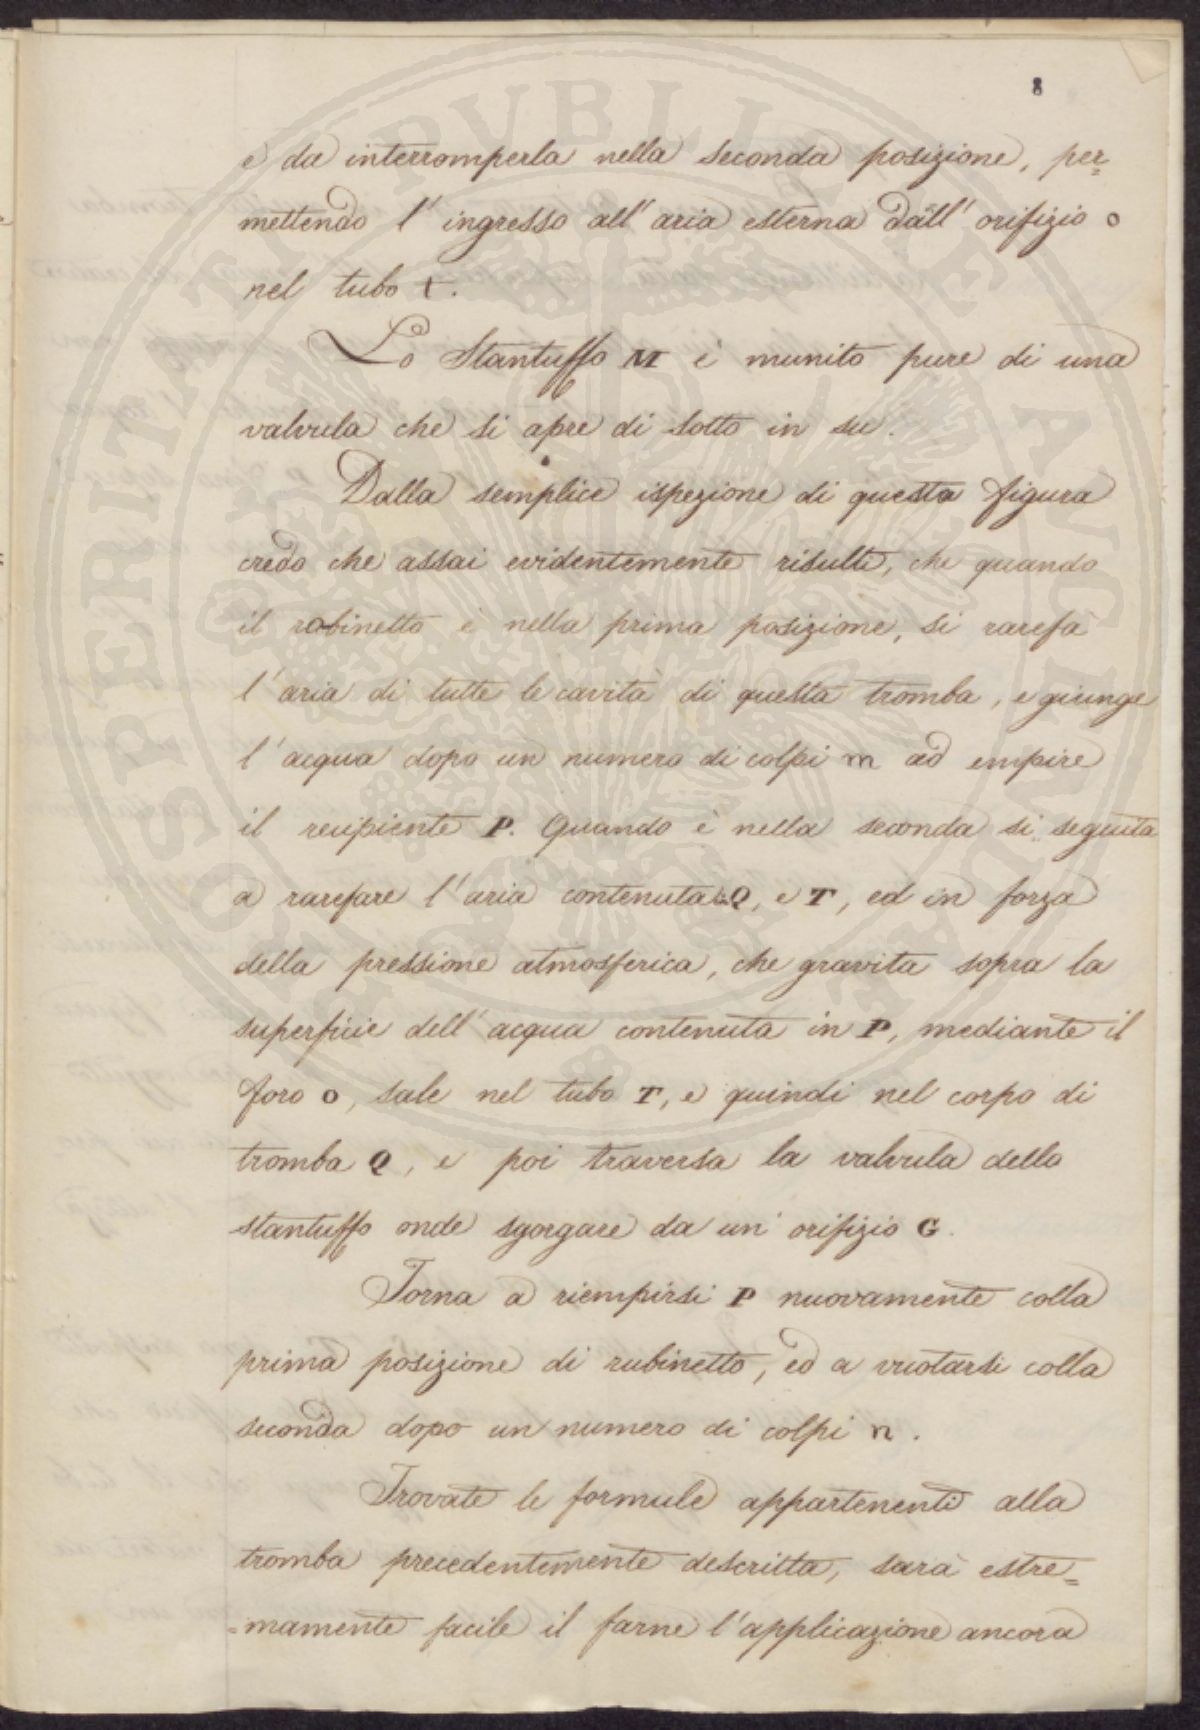 8
e da interromperla nella seconda posizione, per=
mettendo l' ingresso all' aria esterna dall' orifizio o
nel tubo t.
Lo Stantuffo M è munito pure di una
valvula che si apre di sotto in su.
Dalla semplice ispezione di questa figura
credo che assai evidentemente risulti, che quando
il robinetto è nella prima posizione, si rarefà
l' aria di tutte le cavità di questa tromba, e giunge
l' acqua dopo un numero di colpi m ad empire
il recipiente P. Quando è nella seconda si seguita
a rarefare l' aria contenuta in Q, e T, ed in forza
della pressione atmosferica, che gravita sopra la
superficie dell' acqua contenuta in P, mediante il
foro o, sale nel tubo T, e quindi nel corpo di
tromba Q, e poi traversa la valvula dello
stantuffo onde sgorgare da un' orifizio G.
Torna a riempirsi P nuovamente colla
prima posizione di rubinetto, ed a vuotarsi colla
seconda dopo un numero di colpi n.
Trovate le formule appartenenti alla
tromba precedentemente descritta, sarà estre=
=mamente facile il farne l' applicazione ancora
PROSPERITATI PVBLICAE AVGENDAE